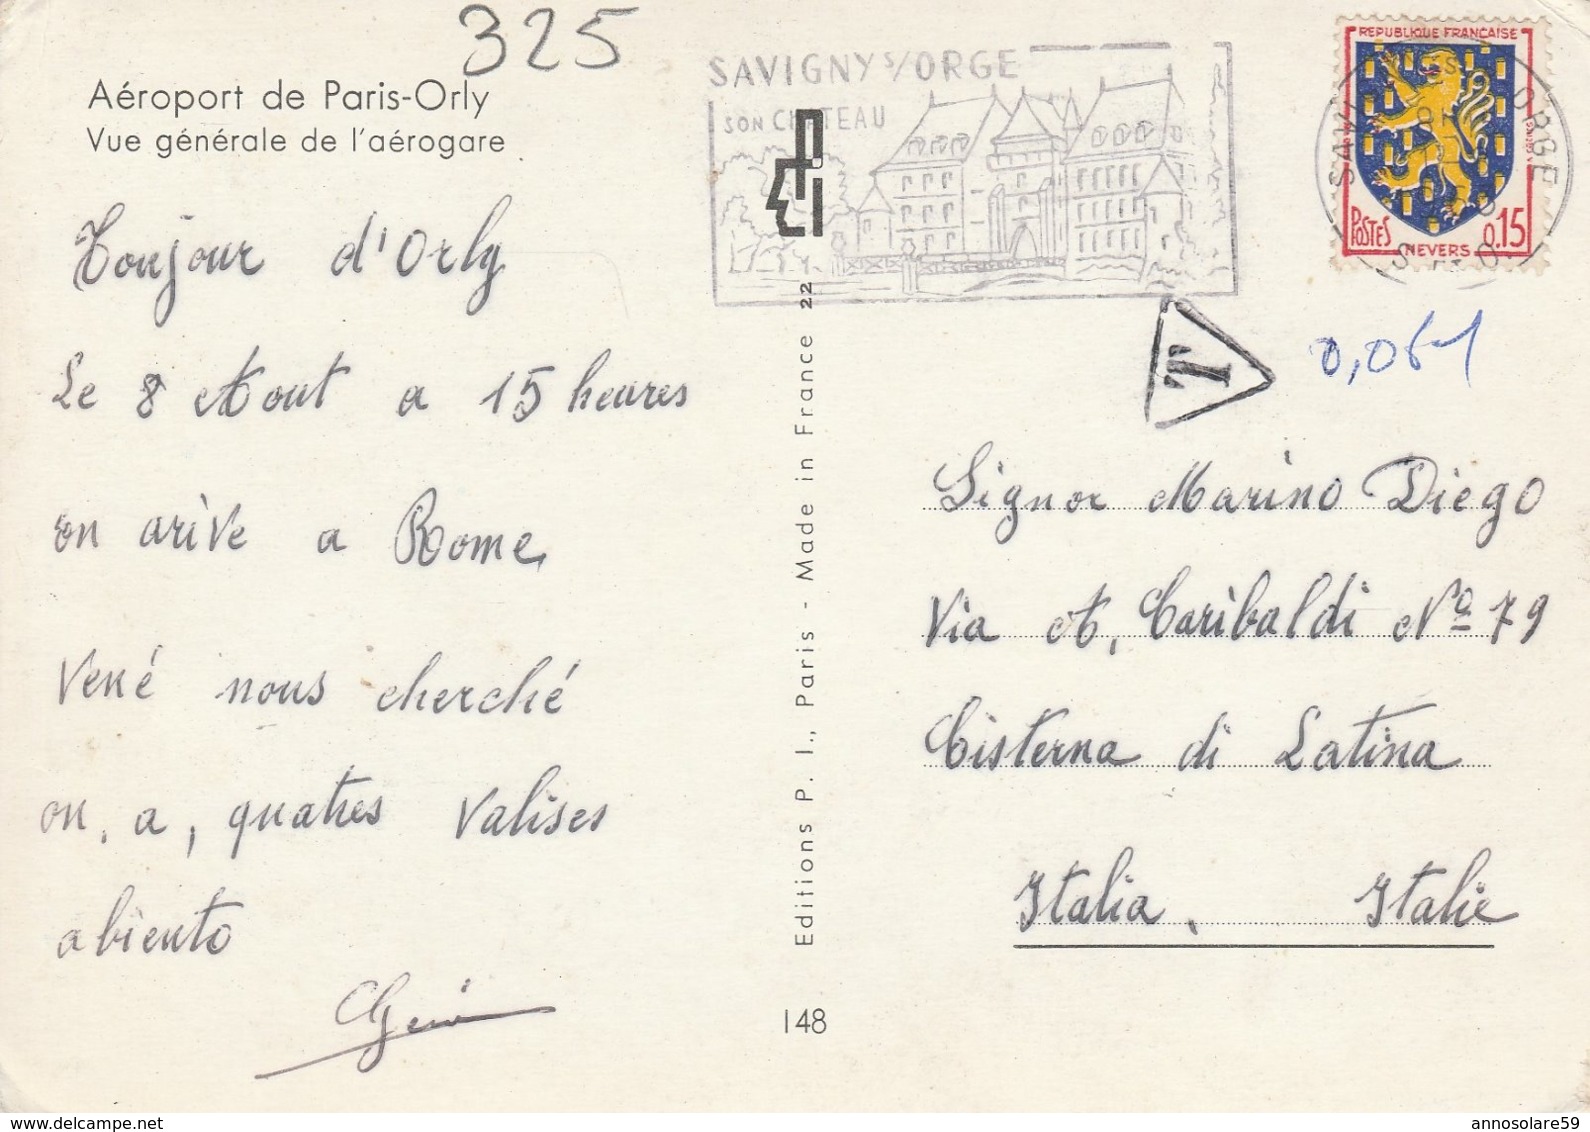 325
Aéroport de Paris-Orly
Vue générale de l'aérogare
SAVIGNY S/ORGE
SON CHATEAU
REPUBLIQUE FRANÇAISE
POSTES 0.15
NEVERS
T
Bonjour d'Orly
Le 8 Aout a 15 heures
on arive a Rome
Vené nous cherché
on, a, quatres valises
abiento
Editions P. I., Paris - Made in France 22
148
Signor Marino Diego
Via A, Garibaldi Nº 79
Cisterna di Latina
Italia, Italie
delcampe.net
annosolare59